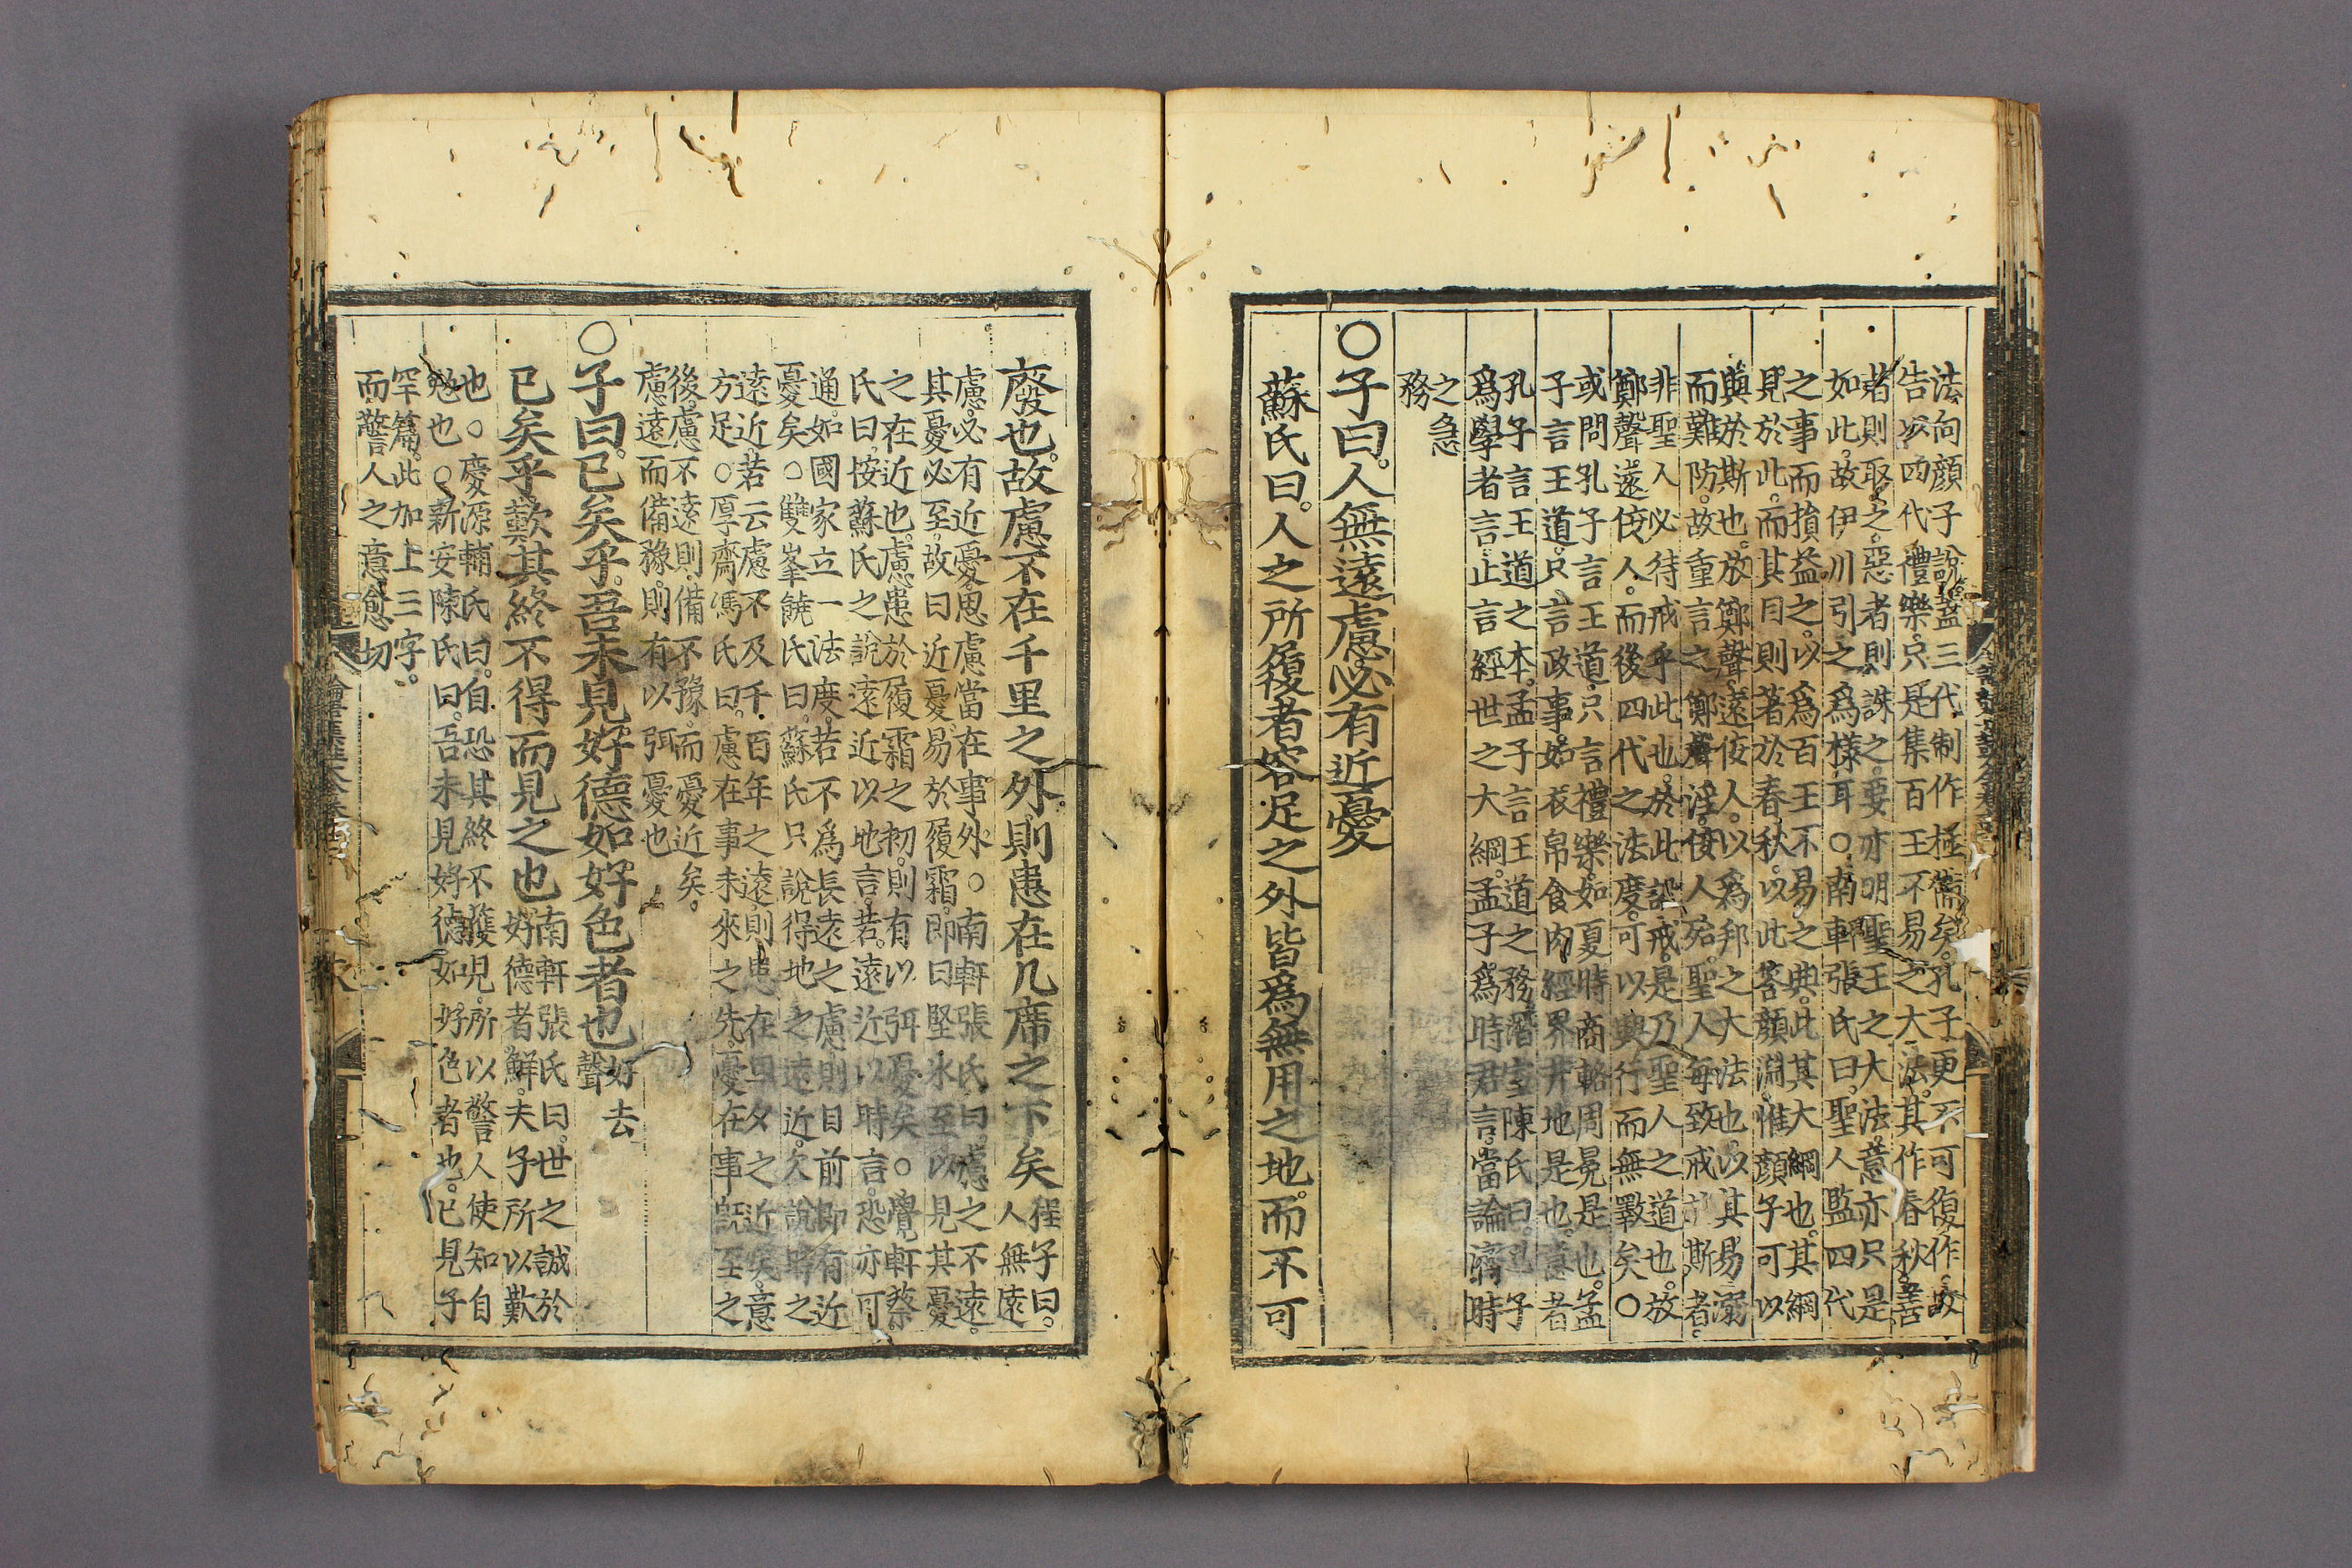 法向顔子說。蓋三代制作極備矣。孔子更不可復作。故
告以四代禮樂。只是集百王不易之大法。其作春秋。善
者則取之。惡者則誅之。要亦明聖王之大法。意亦只是
如此。故伊川引之爲樣耳○南軒張氏曰。聖人監四代
之事而損益之。以爲百王不易之典。此其大綱也。其綱
見於此。而其目則著於春秋。以此答顔淵。惟顔子可以
與於斯也。放鄭聲。遠佞人。以爲邦之大法也。以其易溺
而難防。故重言之。鄭聲淫。佞人殆。聖人每致戒於斯者。
非聖人必待戒乎此也。於此設戒。是乃聖人之道也。放
鄭聲遠佞人。而後四代之法度。可以興行而無斁矣○
或問孔子言王道。只言禮樂。如夏時商輅周冕是也。孟
子言王道。只言政事。如衣帛食肉經界井地是也。意者
孔子言王道之本。孟子言王道之務。潛室陳氏曰。孔子
爲學者言。止言經世之大綱。孟子爲時君言。當論濟時
之急
務
○子曰。人無遠慮必有近憂
蘇氏曰。人之所履者容足之外皆爲無用之地。而不可
廢也。故慮不在千里之外。則患在几席之下矣
程子曰。
人無遠
慮。必有近憂。思慮當在事外。○南軒張氏曰。慮之不遠。
其憂必至。故曰近憂。易於履霜。即曰堅氷至。以見其憂
之在近也。慮患於履霜之初。則有以弭憂矣。○覺軒蔡
氏曰。按蘇氏之說遠近以地言。若遠近以時言。恐亦可
通。如國家立一法度。若不爲長遠之慮。則目前即有近
憂矣○雙峯饒氏曰。蘇氏只說得地之遠近。欠說時之
遠近。若云慮不及千百年之遠。則患在旦夕之近矣。意
方足○厚齋馮氏曰。慮在事未來之先。憂在事旣至之
後。慮不遠則備不豫。而憂近矣。
慮遠而備豫。則有以弭憂也
○子曰。已矣乎。吾未見好德如好色者也
好去
聲
已矣乎歎其終不得而見之也
南軒張氏曰。世之誠於
好德者鮮。夫子所以歎
也。○慶源輔氏曰。自恐其終不獲見。所以警人使知自
勉也○新安陳氏曰。吾未見好德如好色者也。已見子
罕篇。此加上三字。
而警人之意愈切